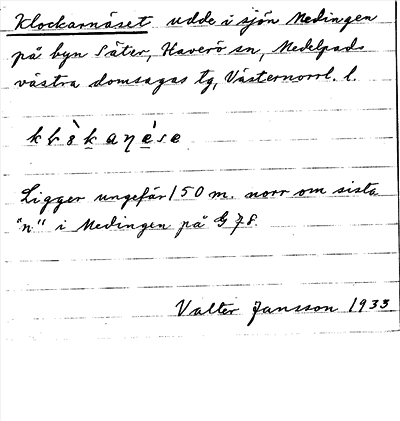 Klockarnäset udde i sjön Medingen
på byn Säter, Haverö sn, Medelpads
västra domsagas tg, Västernorrl. l.
Ligger ungefär 150 m. norr om sista
"n" i Medingen på G 78.
Valter Jansson 1933